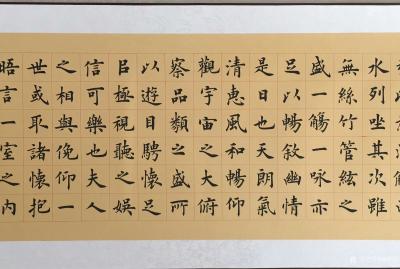 水列坐其次雖
無絲竹管絃之
盛一觴一咏亦
足以暢敘幽情
是日也天朗氣
清惠風和暢仰
觀宇宙之大俯
察品類之盛所
以遊目騁懷足
㠯極視聽之娛
信可樂也夫人
之相與俛仰一
世或取諸懷抱
晤言一室之內